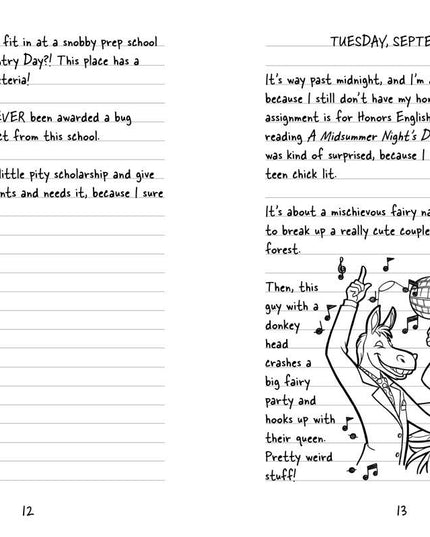 fit in at a snobby prep school
ntry Day?! This place has a
teria!
EVER been awarded a bug
ct from this school.
little pity scholarship and give
nts and needs it, because I sure
12
TUESDAY, SEPTE
It's way past midnight, and I'm
because I still don't have my hom
assignment is for Honors English
reading A Midsummer Night's D
was kind of surprised, because I
teen chick lit.
It's about a mischievous fairy na
to break up a really cute couple
forest.
Then, this
guy with a
donkey
head
crashes a
big fairy
party and
hooks up with
their queen.
Pretty weird
stuff!
13